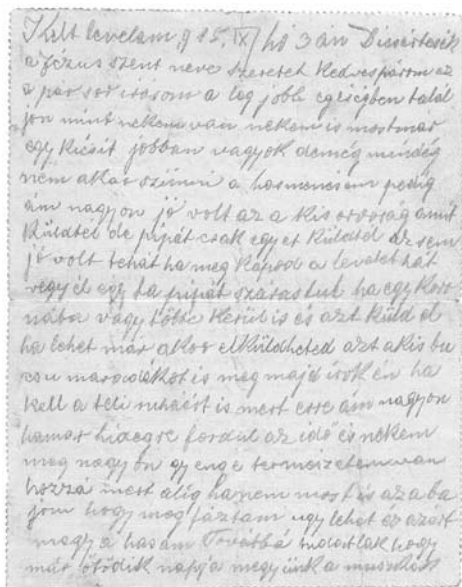 Kelt levelam 915 IX hó 3 án Dicsértesék
a Jézus szent neve szeretet Kedves párom ez
a par sor irásom a leg jobb egeségben talál
jon mint nekem van nekem is mostmar
egy kicsit jobban vagyok de még mindég
nem akar szünni a hasmenésem pedig
ám nagyon jó volt az a kis orvoság amit
küldtél de pipát csak egyet küldtél az sem
jó volt tehát ha meg kapod a levelet hát
vegyél egy pipát szárastul ha egy koro
nába vagy többe kerül is és azt küld el
ha lehet már akor elküldheted azt a kis bu
csu maradékot is meg majd irok én ha
kell a téli ruháért is mert erre ám nagyon
hamar hidegre fordul az idő és nekem
meg nagyon gyenge termeizetem van
hozzá mert alig hanem most is az a ba
jom hogy meg fáztam ugy lehet és azért
megy a hasam Továbbá tudatlak hogy
már ötödik napja megyünk a muszkára